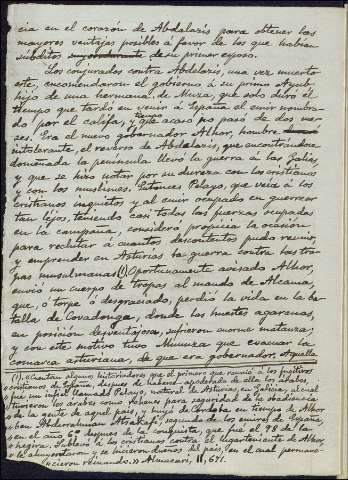 cia en el corazón de Abdalazis para obtener las
mayores ventajas posibles á favor de los que habían
súbditos de su primer esposo.
Los conjurados contra Abdalazis, una vez muerto
este, encomendaron el gobierno á su primo Ayub
hijo de una hermana de Muza, que solo duró el
tiempo que tardó en venir á España el emir nombra-
do por el califa, tiempo que acaso no pasó de dos me-
ses. Era el nuevo gobernador Alhor, hombre
intolerante, el reverso de Abdalazis, que encontrándose
domeñada la península llevó la guerra á las Galias,
y que se hizo notar por su dureza con los cristianos
y con los muslimes. Entonces Pelayo, que veía á los
cristianos inquietos y al emir ocupado en guerrear
tan lejos, teniendo casi todas las fuerzas ocupadas
en la campaña, considera propicia la ocasión
para reclutar á cuantos descontentos pudo reunir,
y emprender en Asturias la guerra contra las tro-
pas musulmanas (1) Oportunamente avisado Alhor,
envió un cuerpo de tropas al mando de Alcama,
que, ó torpe ó desgraciado, perdió la vida en la ba-
talla de Covadonga, donde las huestes agarenas,
en posición desventajosa, sufrieron enorme matanza;
y con este motivo tuvo Munuza que evacuar la
comarca asturiana, de que era gobernador. Aquella
(1). «Cuentan algunos historiadores que el primero que reunió á los fugitivos
cristianos de España, despues de haberse apoderado de ella los árabes,
fue un infiel llamado Pelayo, natural de Asturias, en Galicia, al cual
tuvieron los árabes como rehenes para seguridad de la obediencia
de la gente de aquel país, y huyó de Córdoba en tiempo de Alhor
ben Abderrahman Atsakafi, segundo de los emires de España,
en el año 6º despues de la conquista, que fué el 98 de la
hegira. Sublevó á los cristianos contra el lugarteniente de Alhor,
le ahuyentaron y se hicieron dueños del país, en el cual permane-
cieron reinando.» Almacari, II, 671.